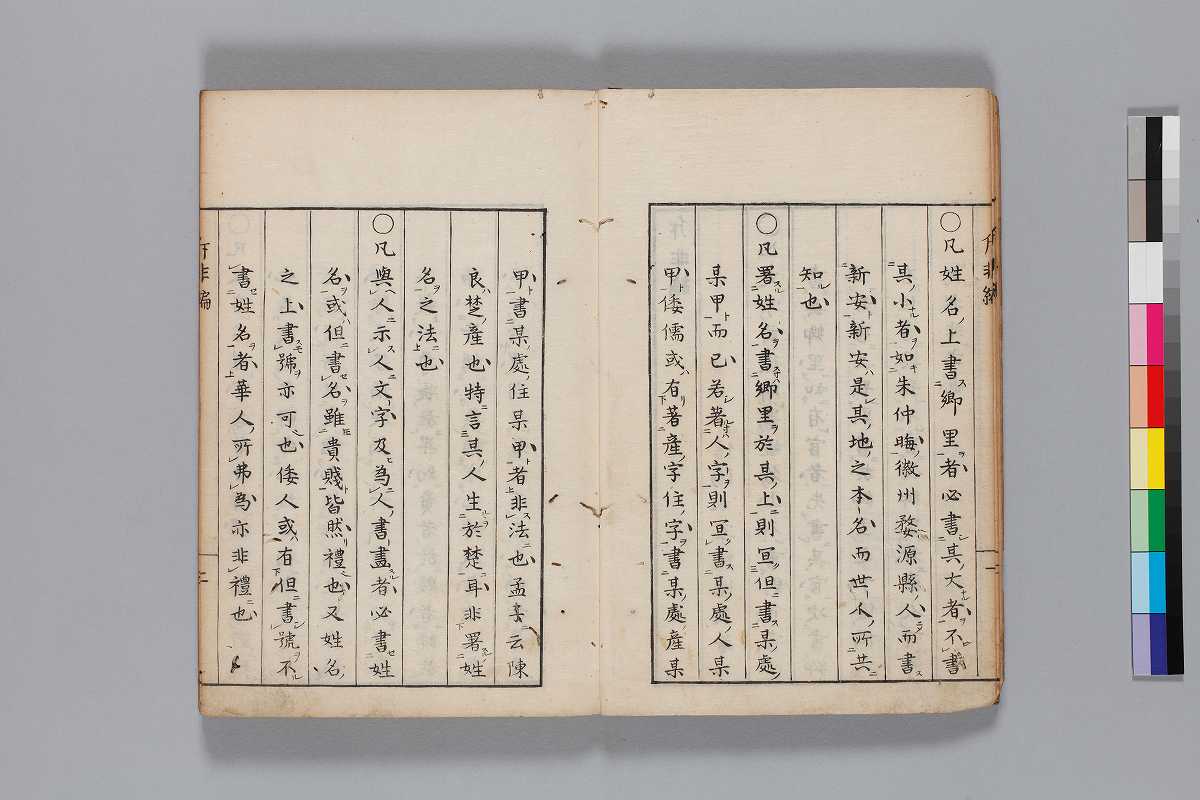 〇凡姓名上書鄉里者必書其大者不書
其小者如朱仲晦徽州婺源縣人而書
新安新安是其地之本名而世人所共
知也
〇凡署姓名書鄉里於其上則宜但書某處
某甲而已若著人字則宜書某處人某
甲倭儒或有著產字住字書某處產某
甲書某處住某甲者非法也孟子云陳
良楚產也特言其人生於楚耳非署姓
名之法也
〇凡與人示人文字及為人書畫者必書姓
名或但書名雖貴賤皆然禮也又姓名
之上書號亦可也倭人或有但書號不
書姓名者華人所弗為亦非禮也